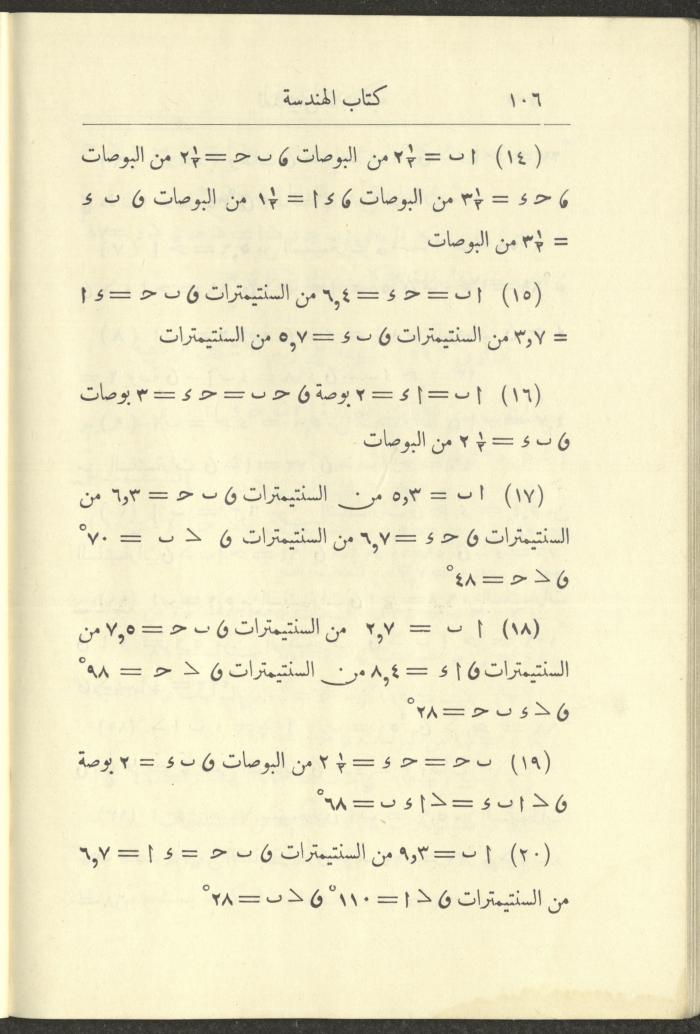 ١٠٦ كتاب الهندسة
(١٤) ا ب = ٢½ من البوصات ، ب ح = ٢½ من البوصات
، ح ء = ٣½ من البوصات ، ء ا = ١½ من البوصات ، ب ء
= ٣½ من البوصات
(١٥) ا ب = ح ء = ٦,٤ من السنتيمترات ، ب ح = ء ا
= ٣,٧ من السنتيمترات ، ب ء = ٥,٧ من السنتيمترات
(١٦) ا ب = ا ء = ٢ بوصة ، ح ب = ح ء = ٣ بوصات
، ب ء = ٢½ من البوصات
(١٧) ا ب = ٥,٣ من السنتيمترات ، ب ح = ٦,٣ من
السنتيمترات ، ح ء = ٦,٧ من السنتيمترات ، < ب = ٧٠°
، < ح = ٤٨°
(١٨) ا ب = ٢,٧ من السنتيمترات ، ب ح = ٧,٥ من
السنتيمترات ، ا ء = ٨,٤ من السنتيمترات ، < ح = ٩٨°
، < ء ب ح = ٢٨°
(١٩) ب ح = ح ء = ٢½ من البوصات ، ب ء = ٢ بوصة
، < ا ب ء = < ا ء ب = ٦٨°
(٢٠) ا ب = ٩,٣ من السنتيمترات ، ب ح = ء ا = ٦,٧
من السنتيمترات ، < ا = ١١٠° ، < ب = ٢٨°